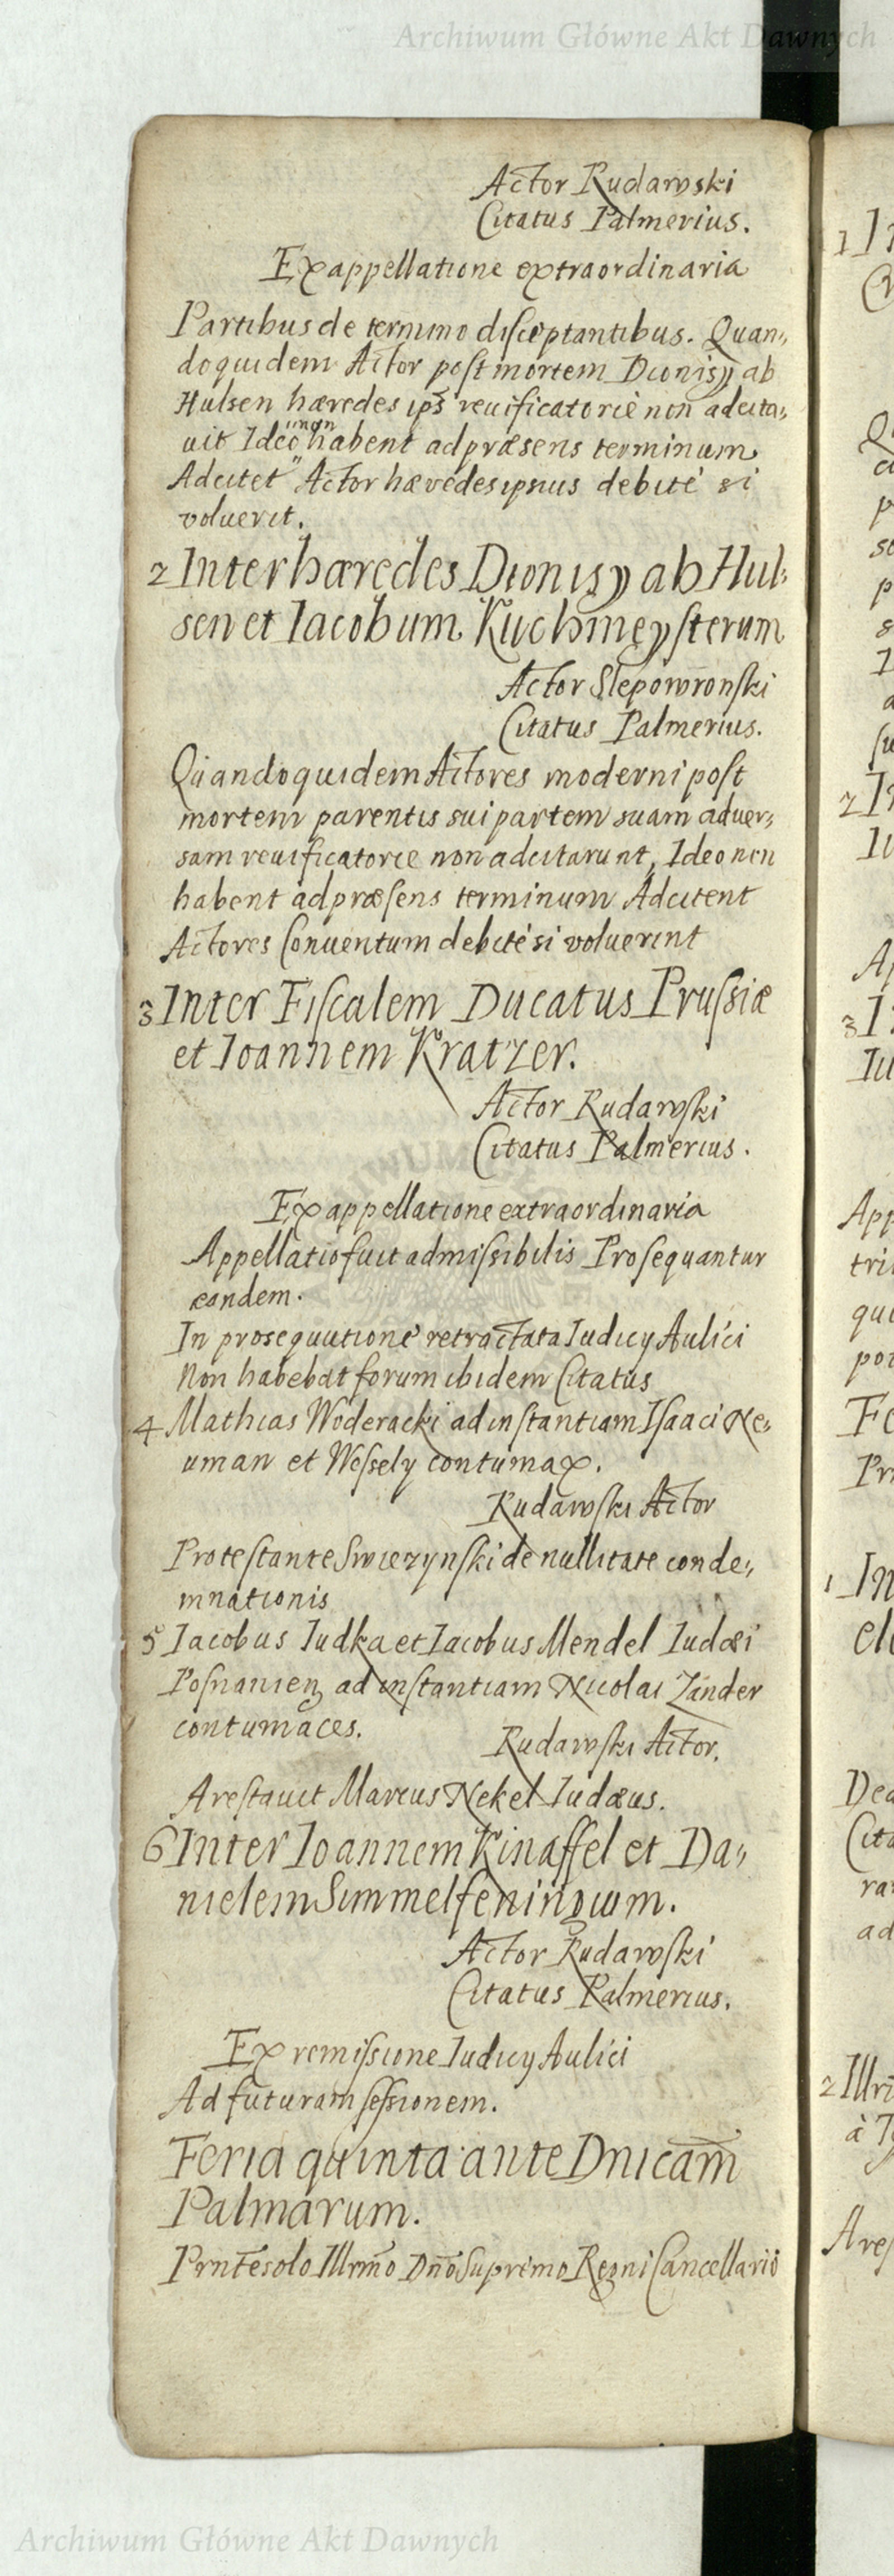 Archiwum Główne Akt Dawnych
Actor Rudawski
Citatus Palmerius.
Ex appellatione extraordinaria
Partibus de termino disceptantibus. Quan„
doquidem Actor post mortem Dionisÿ ab
Hulsen hæredes ips̄ reuificatoriè non adcita„
uit Ideo "non" habent ad præsens terminum
Adcitet Actor hæredes ipsius debitè si
voluerit.
2 Inter hæredes Dionisÿ ab Hul„
sen et Iacobum Kuchmeÿsterum
Actor Slepowronski
Citatus Palmerius.
Quandoquidem Actores moderni post
mortem parentis sui partem suam aduer„
sam reuificatorie non adcitarunt, Ideo non
habent ad præsens terminum Adcitent
Actores Conuentum debitè si voluerint
3 Inter Fiscalem Ducatus Prussiæ
et Ioannem Kratzer.
Actor Rudawski
Citatus Palmerius.
Ex appellatione extraordinaria
Appellatio fuit admissibilis Prosequantur
eandem.
In prosequutione retractata Iudicÿ Aulici
Non habebat forum ibidem Citatus
4 Mathias Woderacki ad instantiam Isaaci Ne„
uman et Wessely contumax.
Rudawski Actor
Protestante Swiezynski de nullitate conde„
mnationis
5 Iacobus Iudka et Iacobus Mendel Iudæi
Posnanien ad instantiam Nicolai Zander
contumaces.
Rudawski Actor.
Arestauit Marcus Nekel Iudæus.
6 Inter Ioannem Kinaffel et Da„
nielem Simmelfeningium.
Actor Rudawski
Citatus Palmerius.
Ex remissione Iudicÿ Aulici
Ad futuram sessionem.
Feria quinta ante Dnicam̄
Palmarum.
Prnt̄e solo Illrm̄o Dn̄o Supremo Regni Cancellario
Archiwum Główne Akt Dawnych